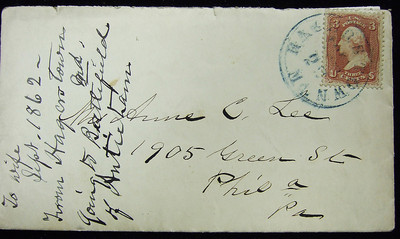 To wife
Sept. 1862 -
From Hagerstown
Md.
Going to Battlefield
of Antietam
Anne C. Lee
1905 Green St
Phil a
Pa
U THREE CENTS S